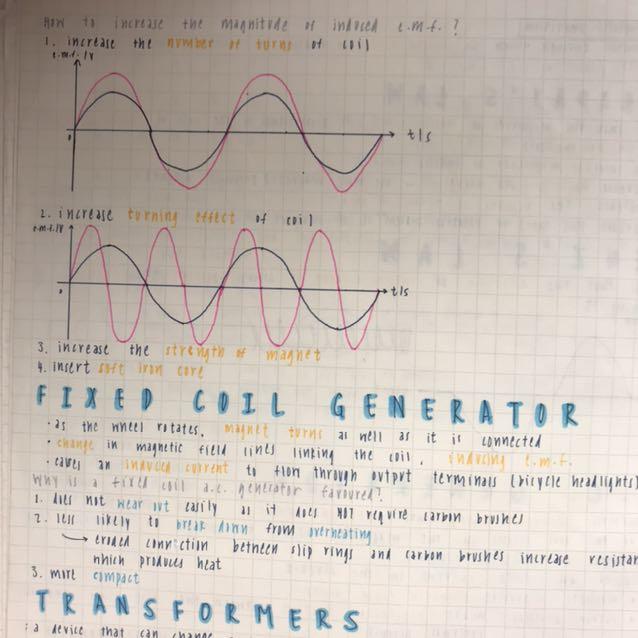 How to increase the magnitude of induced e.m.f. ?
1. increase the number of turns of coil
e.m.f. /V
0
t/s
2. increase turning effect of coil
e.m.f. /V
0
t/s
3. increase the strength of magnet
4. insert soft iron core
FIXED COIL GENERATOR
· as the wheel rotates, magnet turns as well as it is connected
· change in magnetic field lines linking the coil, inducing e.m.f.
· causes an induced current to flow through output terminals (bicycle headlights)
Why is a fixed coil a.c. generator favoured?
1. does not wear out easily as it does NOT require carbon brushes
2. less likely to break down from overheating
→ eroded connection between slip rings and carbon brushes increase resistan
which produces heat
3. more compact
TRANSFORMERS
: a device that can change